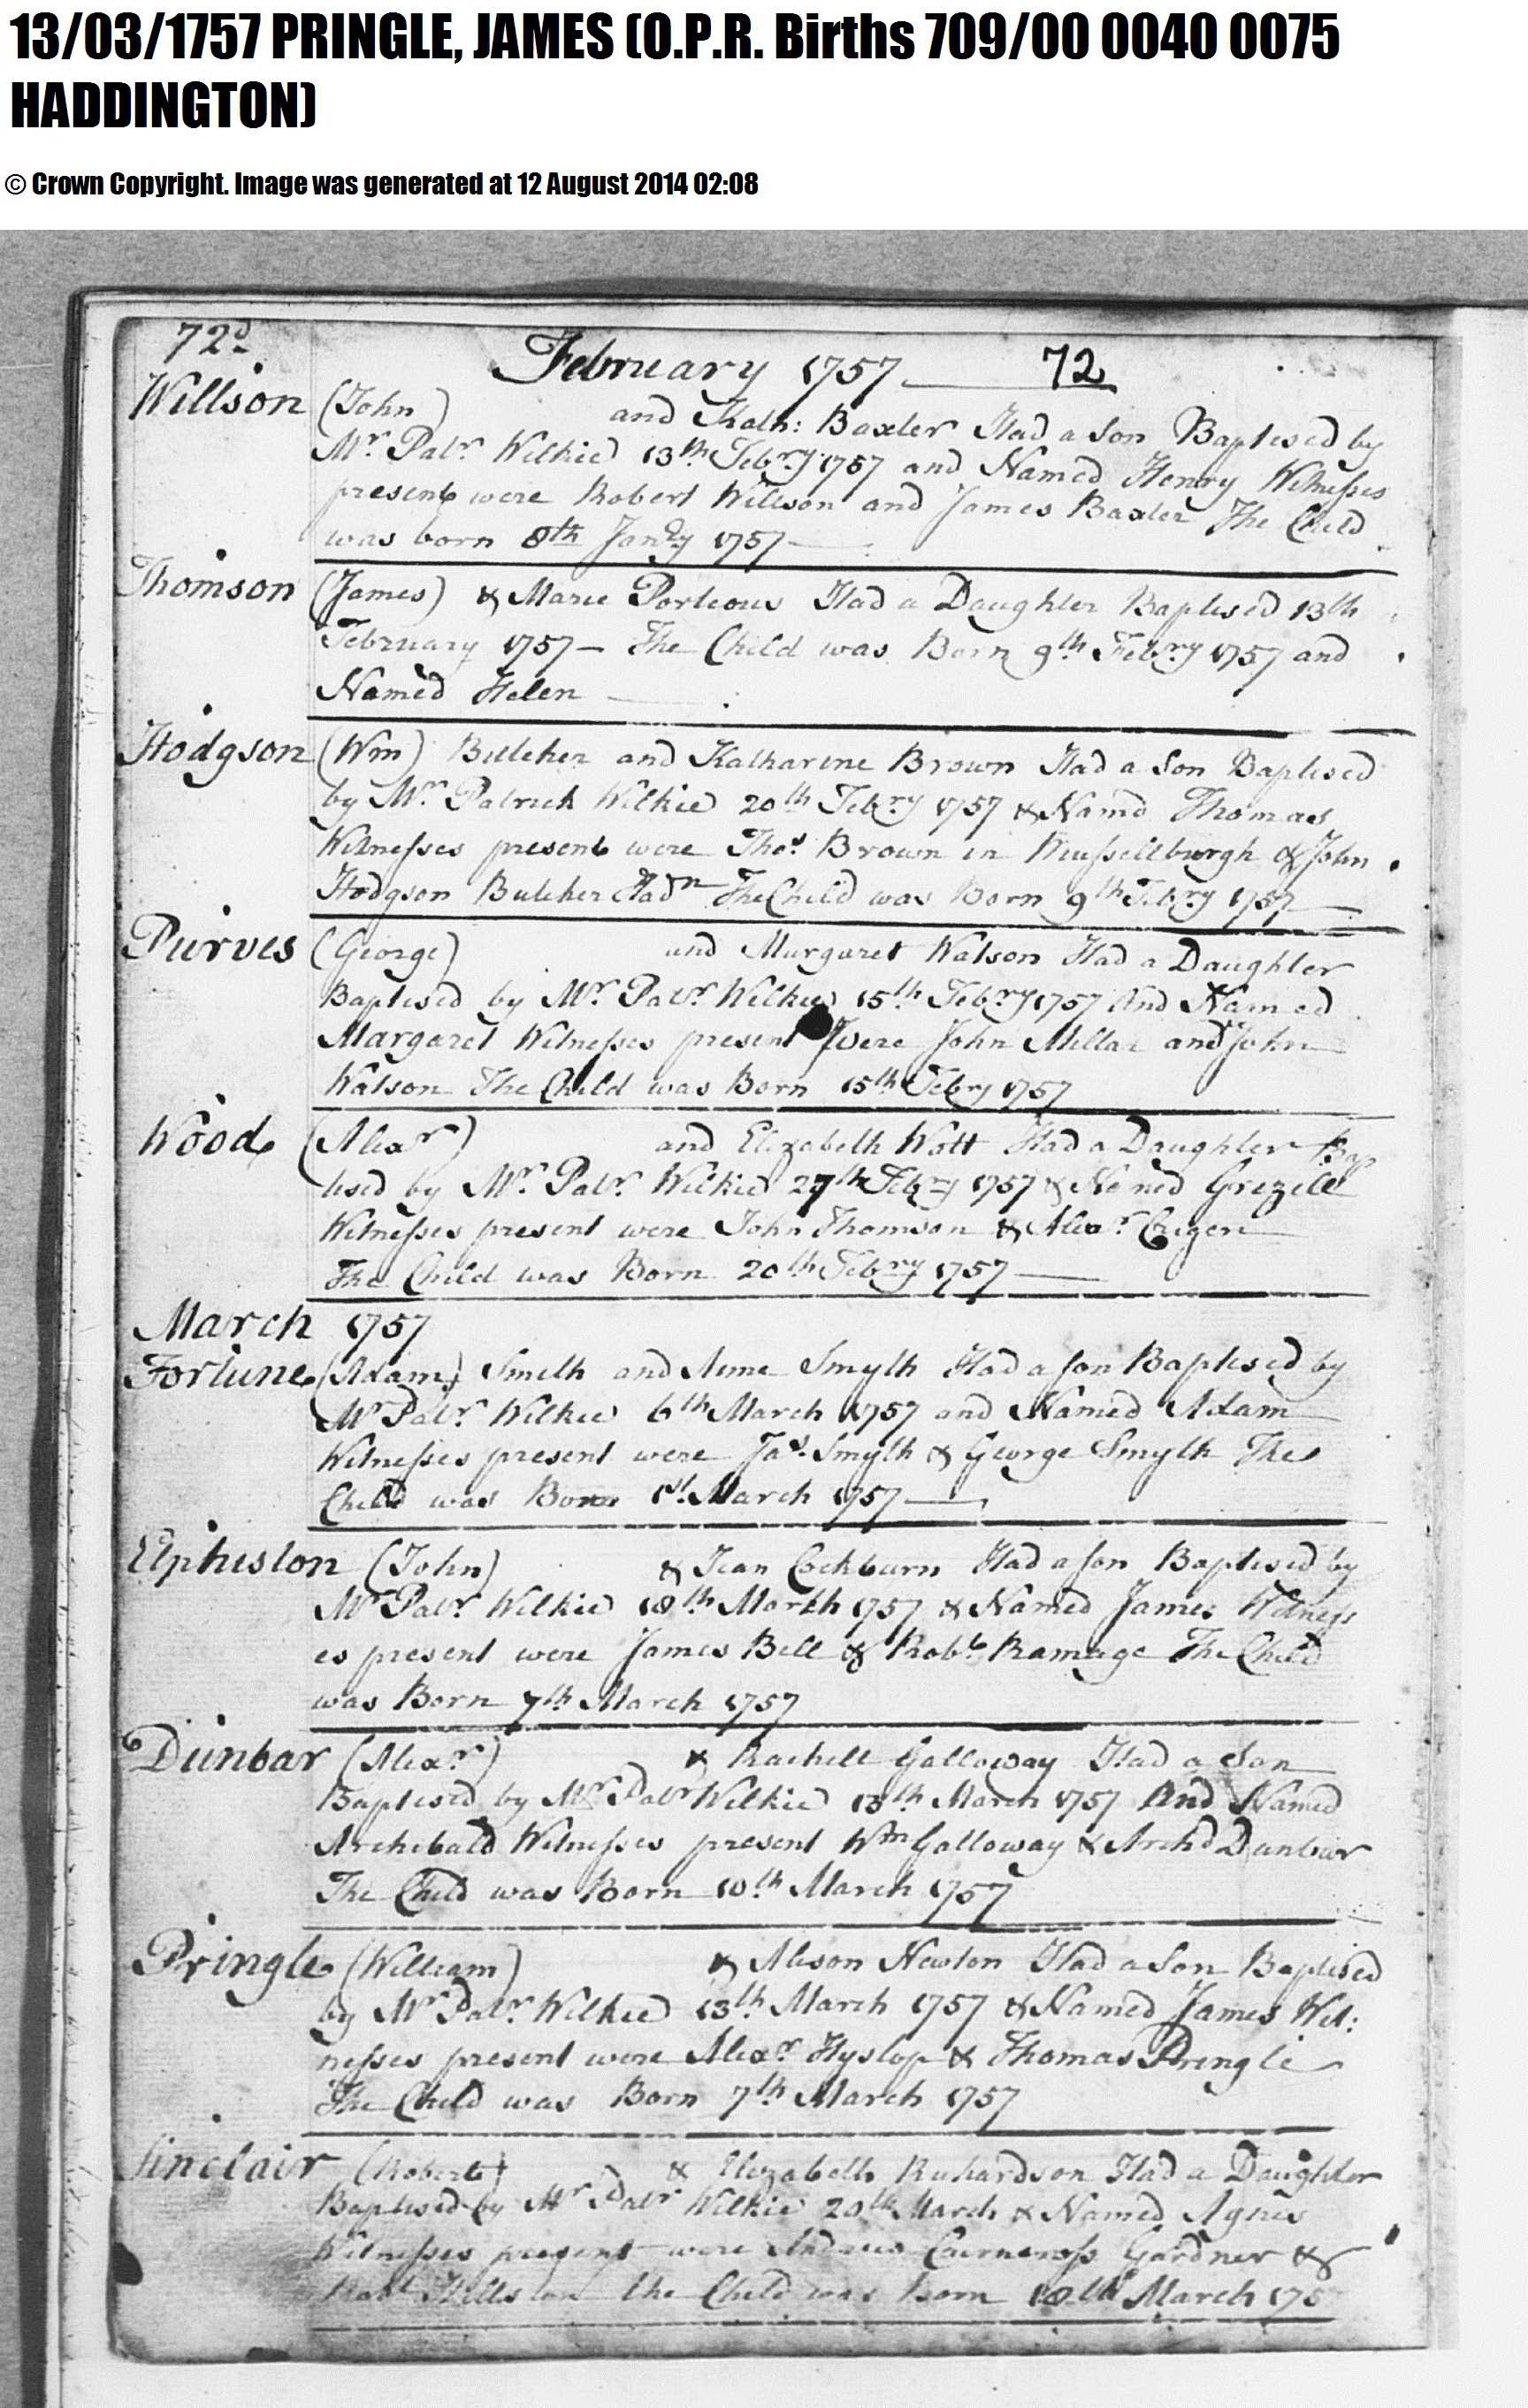 13/03/1757 PRINGLE, JAMES (O.P.R. Births 709/00 0040 0075
HADDINGTON)
© Crown Copyright. Image was generated at 12 August 2014 02:08
72d
February 1757 72
Willson (John) and Kath: Baxter Had a Son Baptised by
Mr. Patr. Wilkie 13th Febry 1757 and Named Henry Witnesses
present were Robert Willson and James Baxter The Child
was born 8th Janry 1757
Thomson (James) & Marie Porteous Had a Daughter Baptised 13th
February 1757 — The Child was Born 9th Febry 1757 and
Named Helen
Hodgson (Wm) Butcher and Katharine Brown Had a Son Baptised
by Mr. Patrick Wilkie 20th Febry 1757 & Namd Thomas
Witnesses present were Thos. Brown in Mussellburgh & John
Hodgson Butcher Hadn The Child was Born 9th Febry 1757
Purves (George) and Margaret Watson Had a Daughter
Baptised by Mr. Patr. Wilkie 15th Febry 1757 And Named
Margaret Witnesses present were John Millar and John
Watson The Child was Born 15th Febry 1757
Wood (Alexr) and Elizabeth Wott Had a Daughter Bap
tised by Mr. Patr. Wilkie 27th Febry 1757 & Named Grizell
Witnesses present were John Thomson & Alexr.
The Child was Born 20th Febry 1757
March 1757
Fortune (Adam) Smith and Anne Smyth Had a Son Baptised by
Mr Patr. Wilkie 6th March 1757 and Named Adam
Witnesses present were Jas. Smyth & George Smyth The
Child was Born 1st. March 1757
Elphiston (John) & Jean Cockburn Had a Son Baptised by
Mr Patr. Wilkie 18th March 1757 & Named James Witness
es present were James Bell & Robt. Ramage The Child
was Born 7th March 1757
Dunbar (Alexr) & Rachell Galloway Had a Son
Baptised by Mr. Patr Wilkie 13th March 1757 And Named
Archibald Witnesses present Wm Galloway & Archd Dunbar
The Child was Born 10th March 1757
Pringle (William) & Alison Newton Had a Son Baptised
by Mr Patr. Wilkie 13th March 1757 & Named James Wit:
nesses present were Alexr Hyslop & Thomas Pringle
The Child was Born 7th March 1757
Sinclair (Robert) & Elizabeth Richardson Had a Daughter
Baptised by Mr Patr Wilkie 20th March & Named Agnes
Witnesses present were Andrew Cairncross Gardner &
Robt the Child was Born 18th March 175